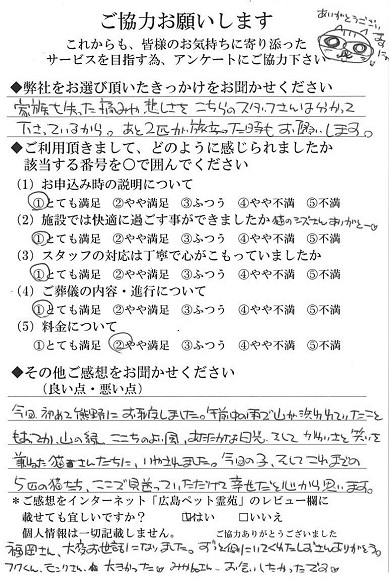 ご協力お願いします
ありがとうござい
ます
これからも、皆様のお気持ちに寄り添った
サービスを目指す為、アンケートにご協力下さい
◆弊社をお選び頂いたきっかけをお聞かせください
家族を失った痛みや悲しさをこちらのスタッフさんは分かって
下さっているから。あと2匹が旅立った時もお願いします。
◆ご利用頂きまして、どのように感じられましたか
該当する番号を○で囲んでください
(1) お申込み時の説明について
①とても満足 ②やや満足 ③ふつう ④やや不満 ⑤不満
(2) 施設では快適に過ごす事ができましたか
①とても満足 ②やや満足 ③ふつう ④やや不満 ⑤不満
(3) スタッフの対応は丁寧で心がこもっていましたか
①とても満足 ②やや満足 ③ふつう ④やや不満 ⑤不満
(4) ご葬儀の内容・進行について
①とても満足 ②やや満足 ③ふつう ④やや不満 ⑤不満
(5) 料金について
①とても満足 ②やや満足 ③ふつう ④やや不満 ⑤不満
◆その他ご感想をお聞かせください
(良い点・悪い点)
今回、初めて熊野にお邪魔しました。午前中の雨で山が洗われていたこと
もあってか、山の緑、ここちのよい風、あたたかな日光、そしてかわいさと笑いを
猫さんたちに、いやされました。今回の子、そしてこれまでの
5匹の猫たち、ここで見送っていただけて幸せだと心から思います。
*ご感想をインターネット「広島ペット霊苑」のレビュー欄に
載せても宜しいですか? ☑はい □いいえ
個人情報は一切記載しません。 ご協力ありがとうございました
福岡さん、大変お世話になりました。